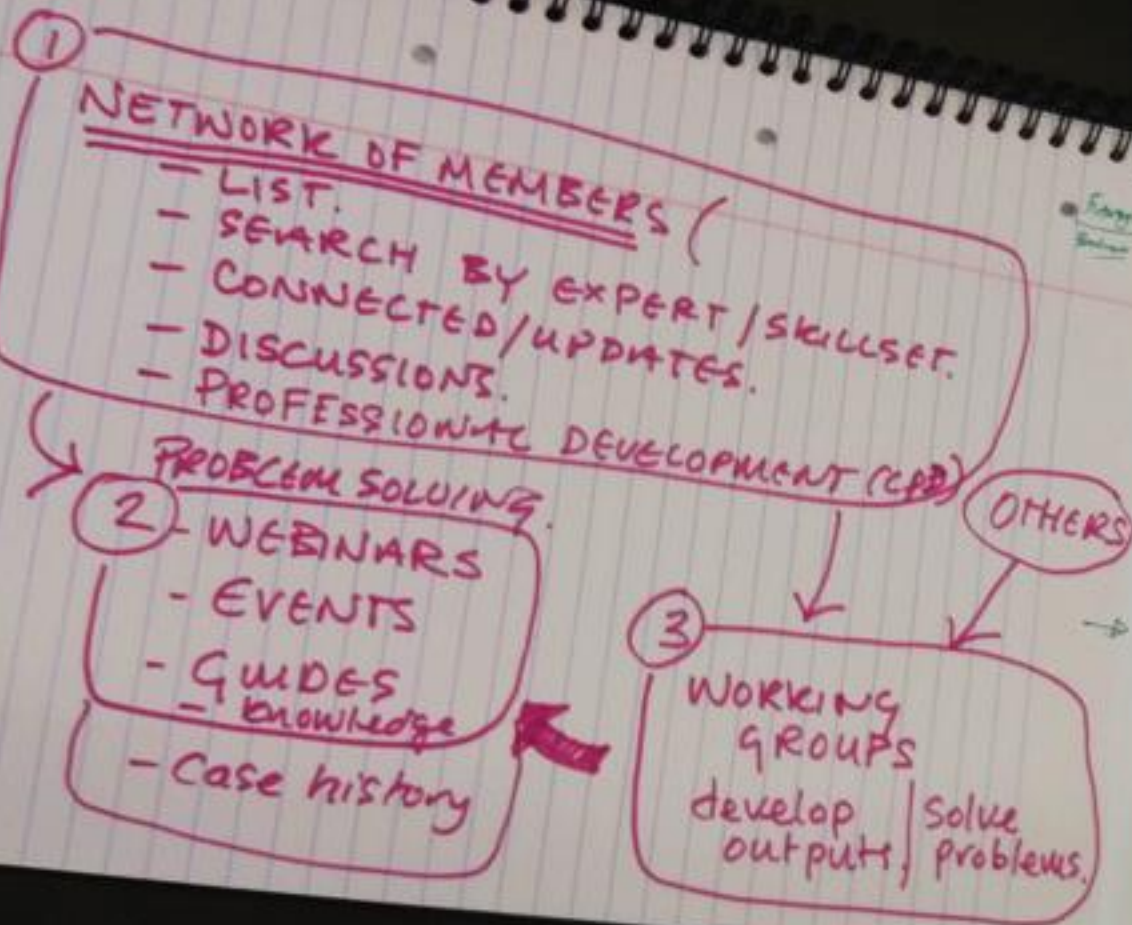 1
NETWORK OF MEMBERS (
- LIST.
- SEARCH BY EXPERT/SKILLSET.
- CONNECTED/UPDATES.
- DISCUSSIONS.
- PROFESSIONAL DEVELOPMENT (CPD)
PROBLEM SOLVING.
2
- WEBINARS
- EVENTS
- GUIDES
- knowledge
- Case history
OTHERS
3
WORKING
GROUPS
develop | solve
outputs, | problems.